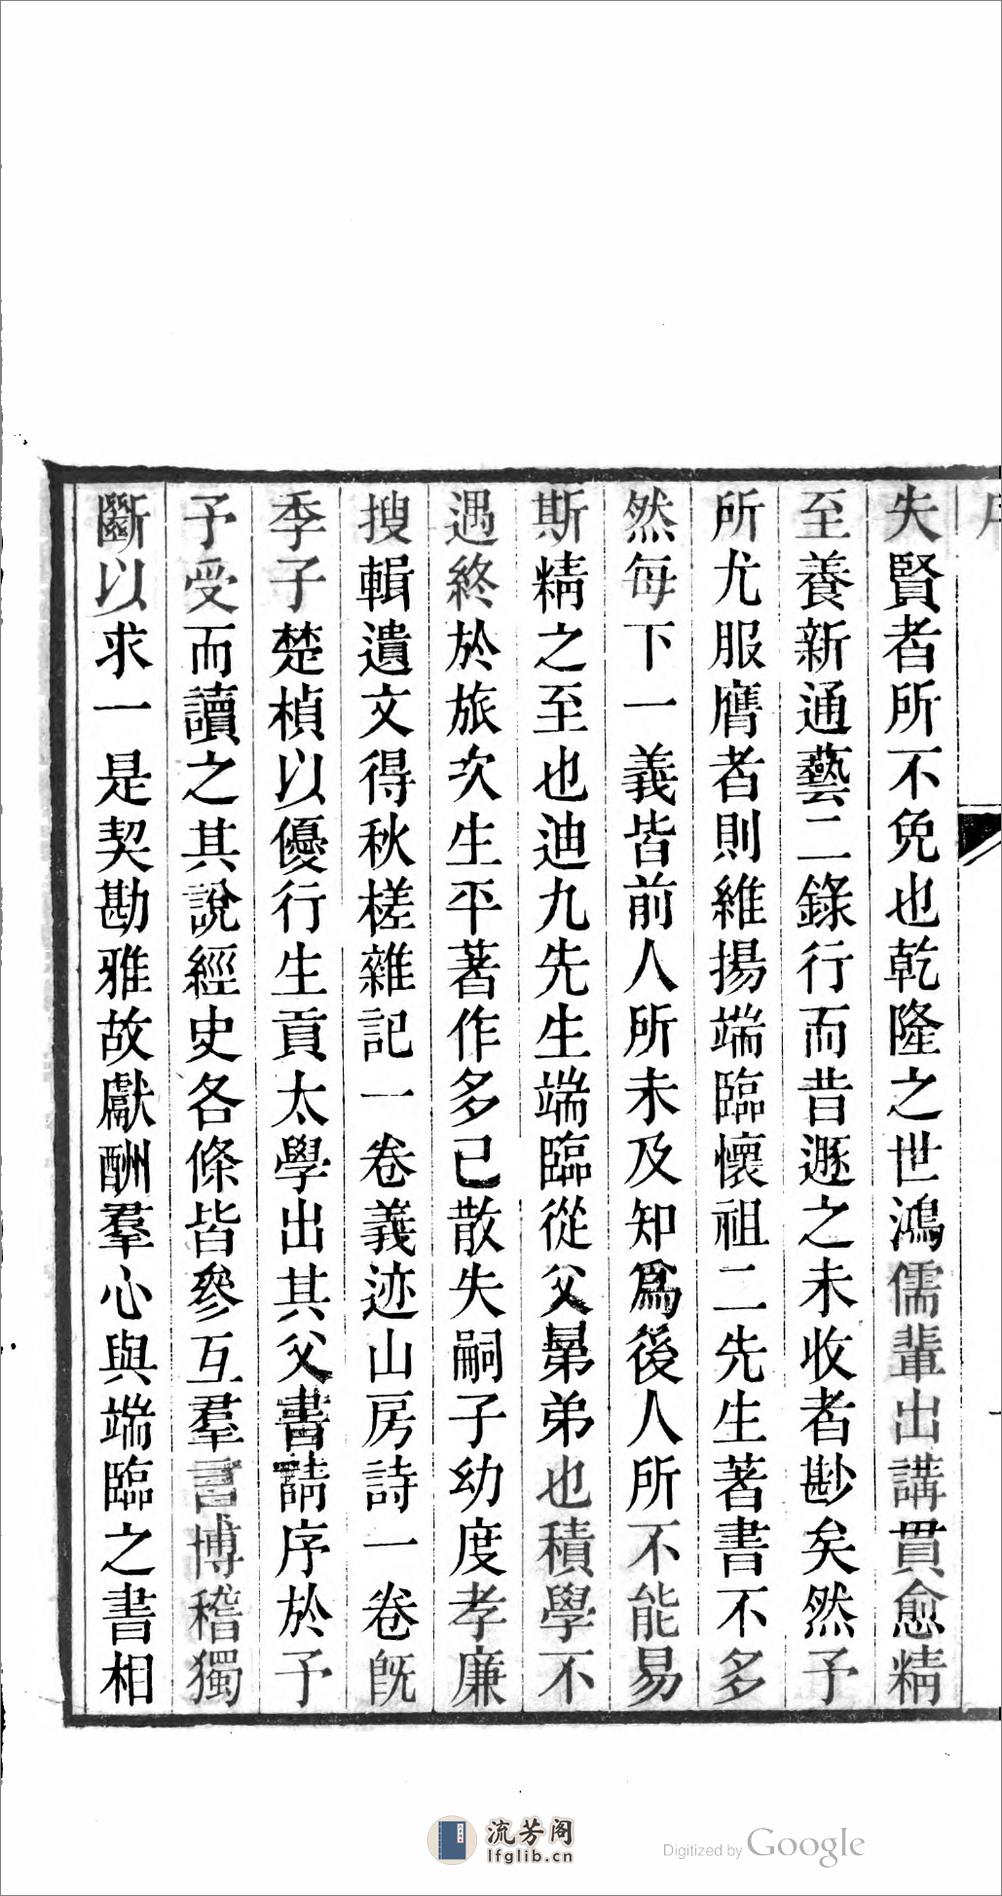 失賢者所不免也乾隆之世鴻儒輩出講貫愈精
至養新通藝二錄行而昔遯之未收者尠矣然予
所尤服膺者則維揚端臨懷祖二先生著書不多
然每下一義皆前人所未及知爲後人所不能易
斯精之至也迪九先生端臨從父晜弟也積學不
遇終於旅次生平著作多已散失嗣子幼度孝廉
搜輯遺文得秋槎雜記一卷義迹山房詩一卷旣
季子楚楨以優行生貢太學出其父書請序於予
予受而讀之其說經史各條皆參互羣言博稽獨
斷以求一是契勘雅故獻酬羣心與端臨之書相
流芳阁
lfglib.cn
Digitized by Google